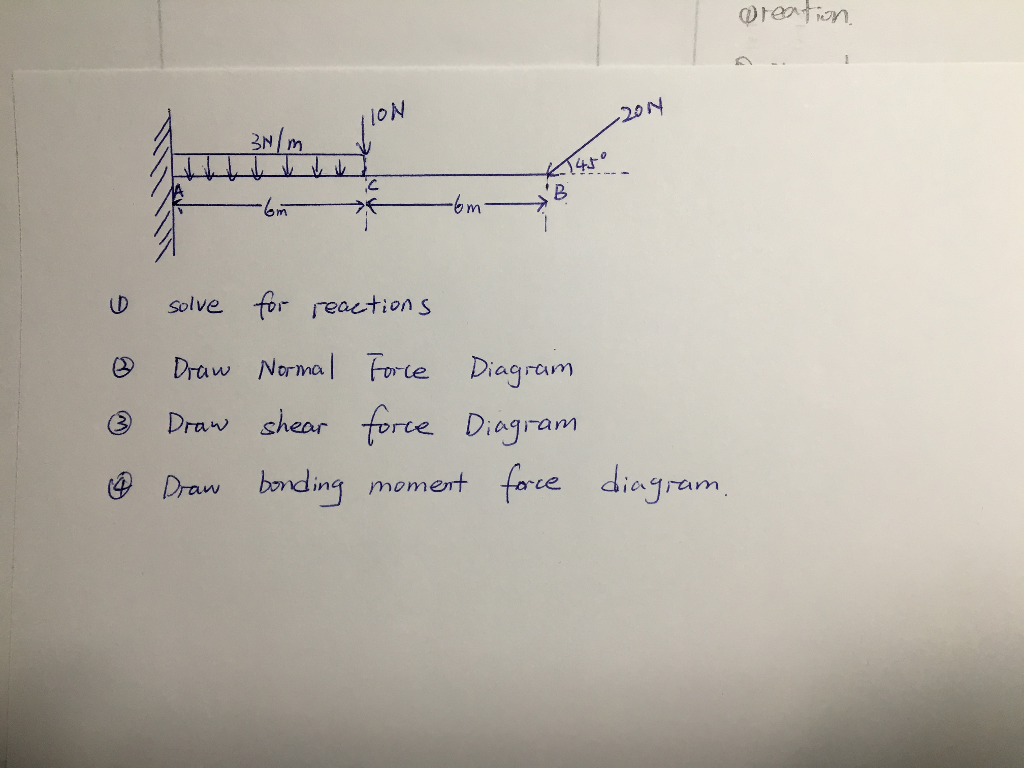 ①reation.
10N
20N
3N/m
45°
A
C
B
6m
6m
① solve for reactions
② Draw Normal Force Diagram
③ Draw shear force Diagram
④ Draw bonding moment force diagram.